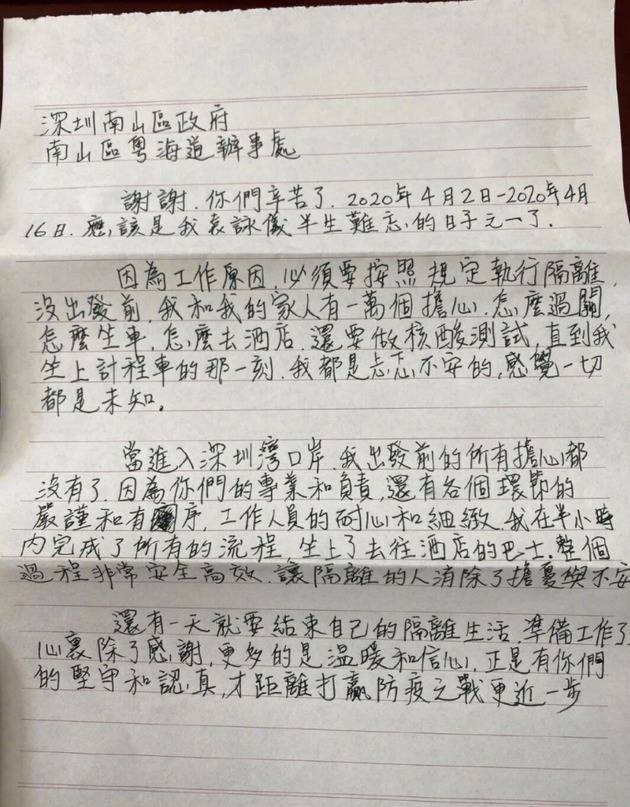 深圳南山區政府
南山區粵海道辦事處
謝謝.你們辛苦了.2020年4月2日-2020年4月
16日.應該是我袁詠儀半生難忘的日子元一了.
因為工作原因.必須要按照規定執行隔離.
沒出發前.我和我的家人有一萬個擔心.怎麼過關,
怎麼坐車.怎麼去酒店.還要做核酸測試,直到我
坐上計程車的那一刻.我都是忐忑不安的,感覺一切
都是未知。
當進入深圳灣口岸.我出發前的所有擔心都
沒有了.因為你們的專業和負責,還有各個環節的
嚴謹和有序,工作人員的耐心和細緻.我在半小時
內完成了所有的流程,坐上了去往酒店的巴士.整個
過程非常安全高效.讓隔離的人消除了擔憂與不安
還有一天就要結束自己的隔離生活.準備工作了.
心裏除了感謝,更多的是溫暖和信心.正是有你們
的堅守和認真,才距離打贏防疫之戰更近一步